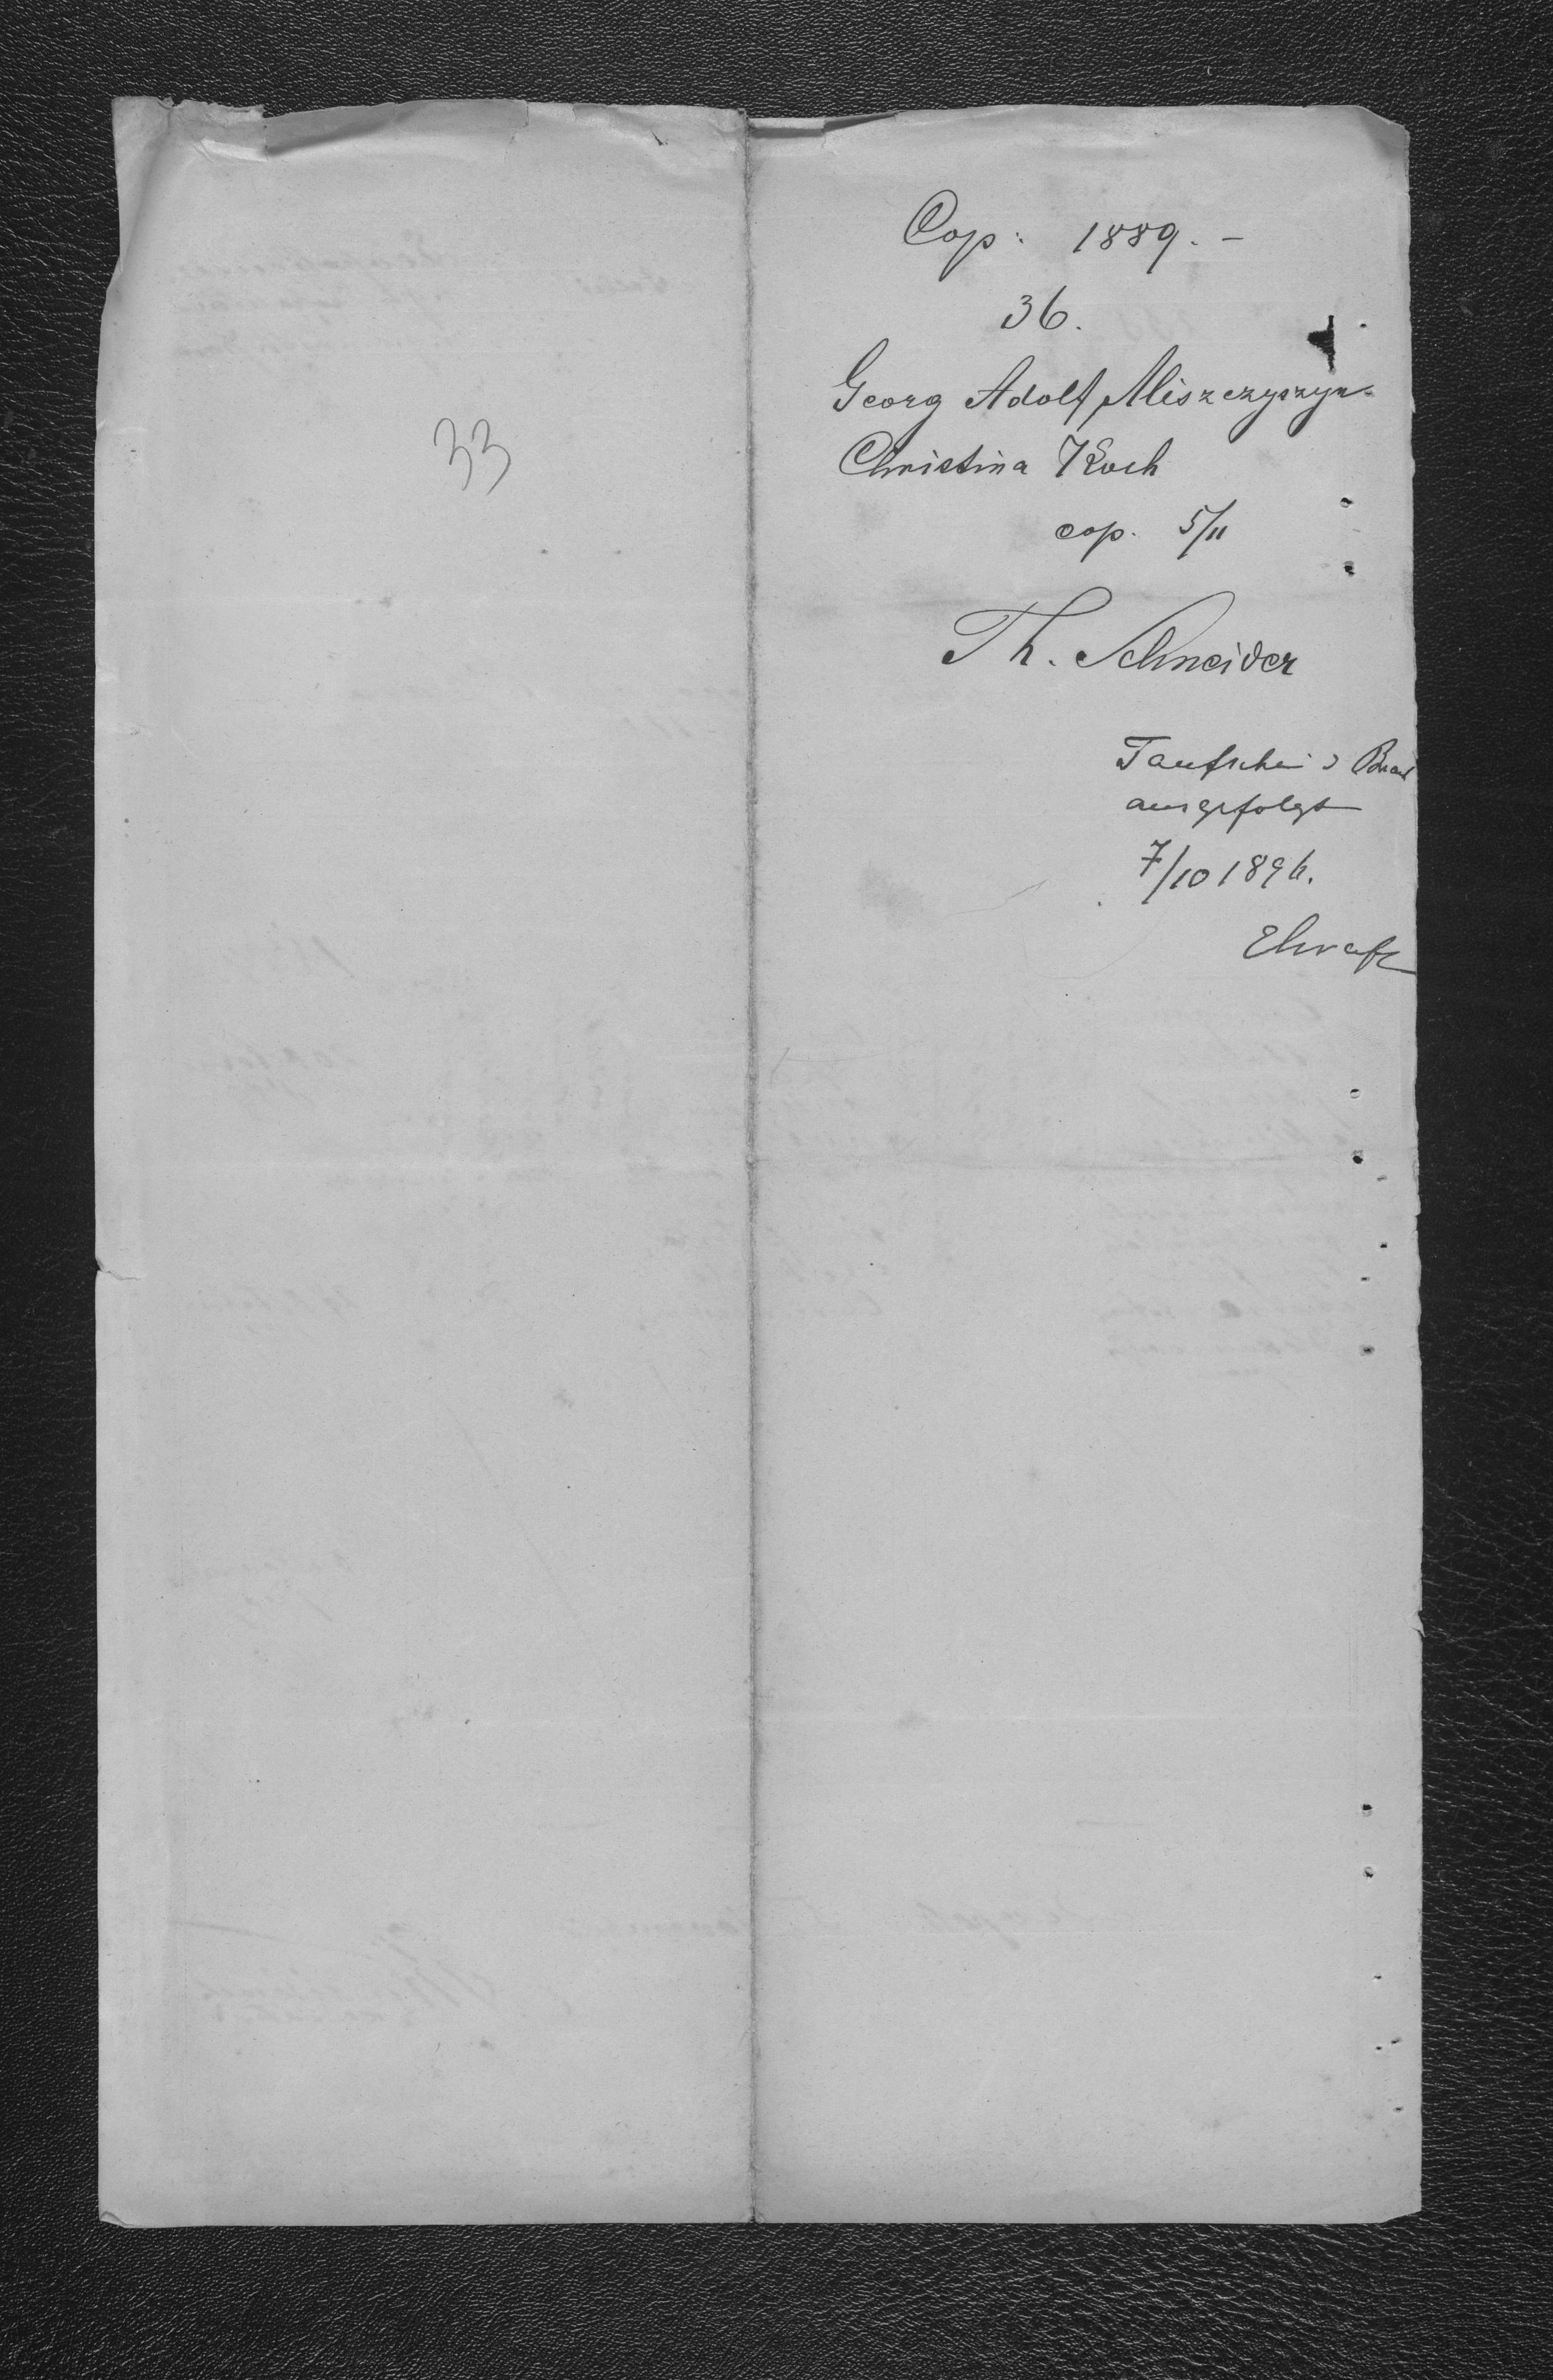 33
Cop: 1889. -
36.
Georg Adolf Miszczyszyn.
Christina Koch
cop. 5/11
Th. Schneider
Taufschein d Braut
ausgefolgt
7/10 1896.